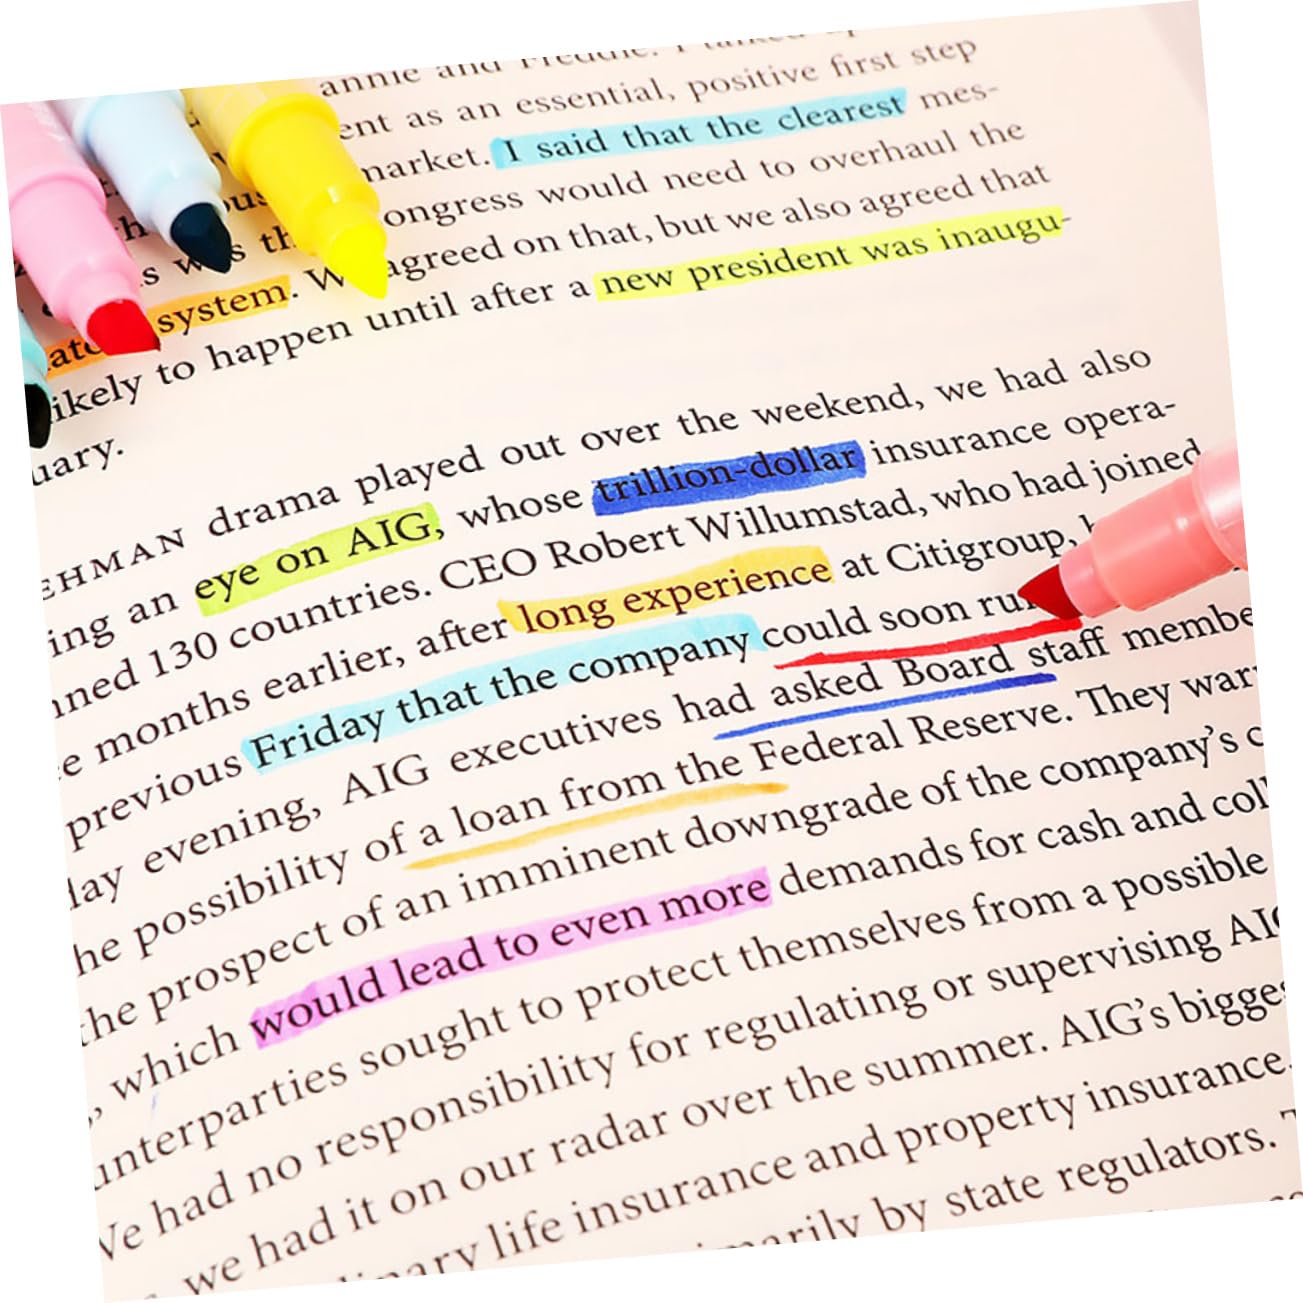 annie and Freddie. I talked
ent as an essential, positive first step
market. I said that the clearest mes-
ongress would need to overhaul the
agreed on that, but we also agreed that
system. new president was inaugu-
ikely to happen until after a
uary.
EHMAN drama played out over the weekend, we had also
ing an eye on AIG, whose trillion-dollar insurance opera-
nned 130 countries. CEO Robert Willumstad, who had joined
e months earlier, after long experience at Citigroup,
previous Friday that the company could soon ru
day evening, AIG executives had asked Board staff membe
he possibility of a loan from the Federal Reserve. They war
the prospect of an imminent downgrade of the company's c
, which would lead to even more demands for cash and coll
unterparties sought to protect themselves from a possible
We had no responsibility for regulating or supervising AIG
we had it on our radar over the summer. AIG's bigges
dinary life insurance and property insurance.
marily by state regulators.